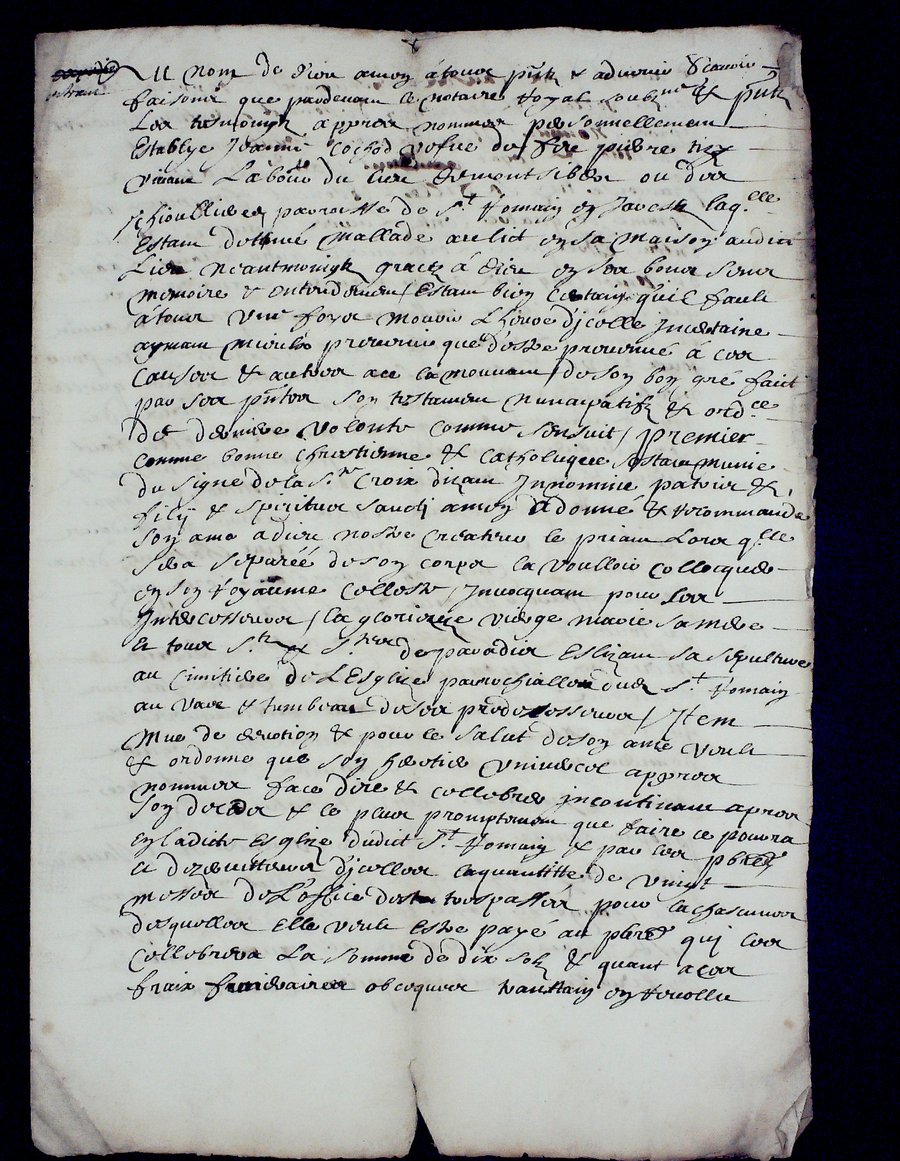 Au nom de Dieu amen a tous pnts & advenir Scavoir
faisons que pardevant le notaire royal soubzne & pnts
Les tesmoingz appres nommes personnellement
Establye Jeanne Cochod vefve de feu pierre
vivant Labour du lieu de montsibler ou des
parroisse de St Romain en Jarestz laqlle
Estant detenue mallade au lict en sa maison audict
Lieu Neantmoingz graces a Dieu en ses bons sens
memoire & entendement / Estant bien certaine qu'il fault
a tous une foys mourir L'heure d'icelle Incertaine
aymant mieulx prevenir que d'estre prevenue a ces
Causes & autres ace la mouvant / de son bon gré faict
par ses pntes son testament nuncupatifz & ordce
de derniere volonte comme sensuit / premier
comme bonne chrestienne & catholique sestant munie
du signe de la Ste Croix disant In nomine patris &
filij & spiritus sancti amen a donné & recommandé
son ame a dieu nostre createur le priant Lors qlle
sera separée de son corps la voulloir collocquer
en son royaume celleste / Invocquant pour ses
Intercesseurs / la glorieuze vierge marie sa mere
Et tous sts & stes de paradis Eslizant sa sepulture
au cimitiere de L'Esglize parrochialle dud St Romain
au vas & tumbeau de ses predecesseurs / Item
mue de devotion & pour le salut de son ame veult
& ordonne que son heritier universel appres
nommer face dire & cellebrer incontinant apres
son deces & le plus promptement que faire ce pourra
en ladicte Esglize dudict St Romain & par les pbres
& desservitteurs d'icelles la quantitte de vingt
messes de L'office des trespasses pour la chascunes
desquelles Elle veult Estre payé au pbre qui les
cellebrera La somme de dix solz & quant a ces
fraix funeraires obceques en